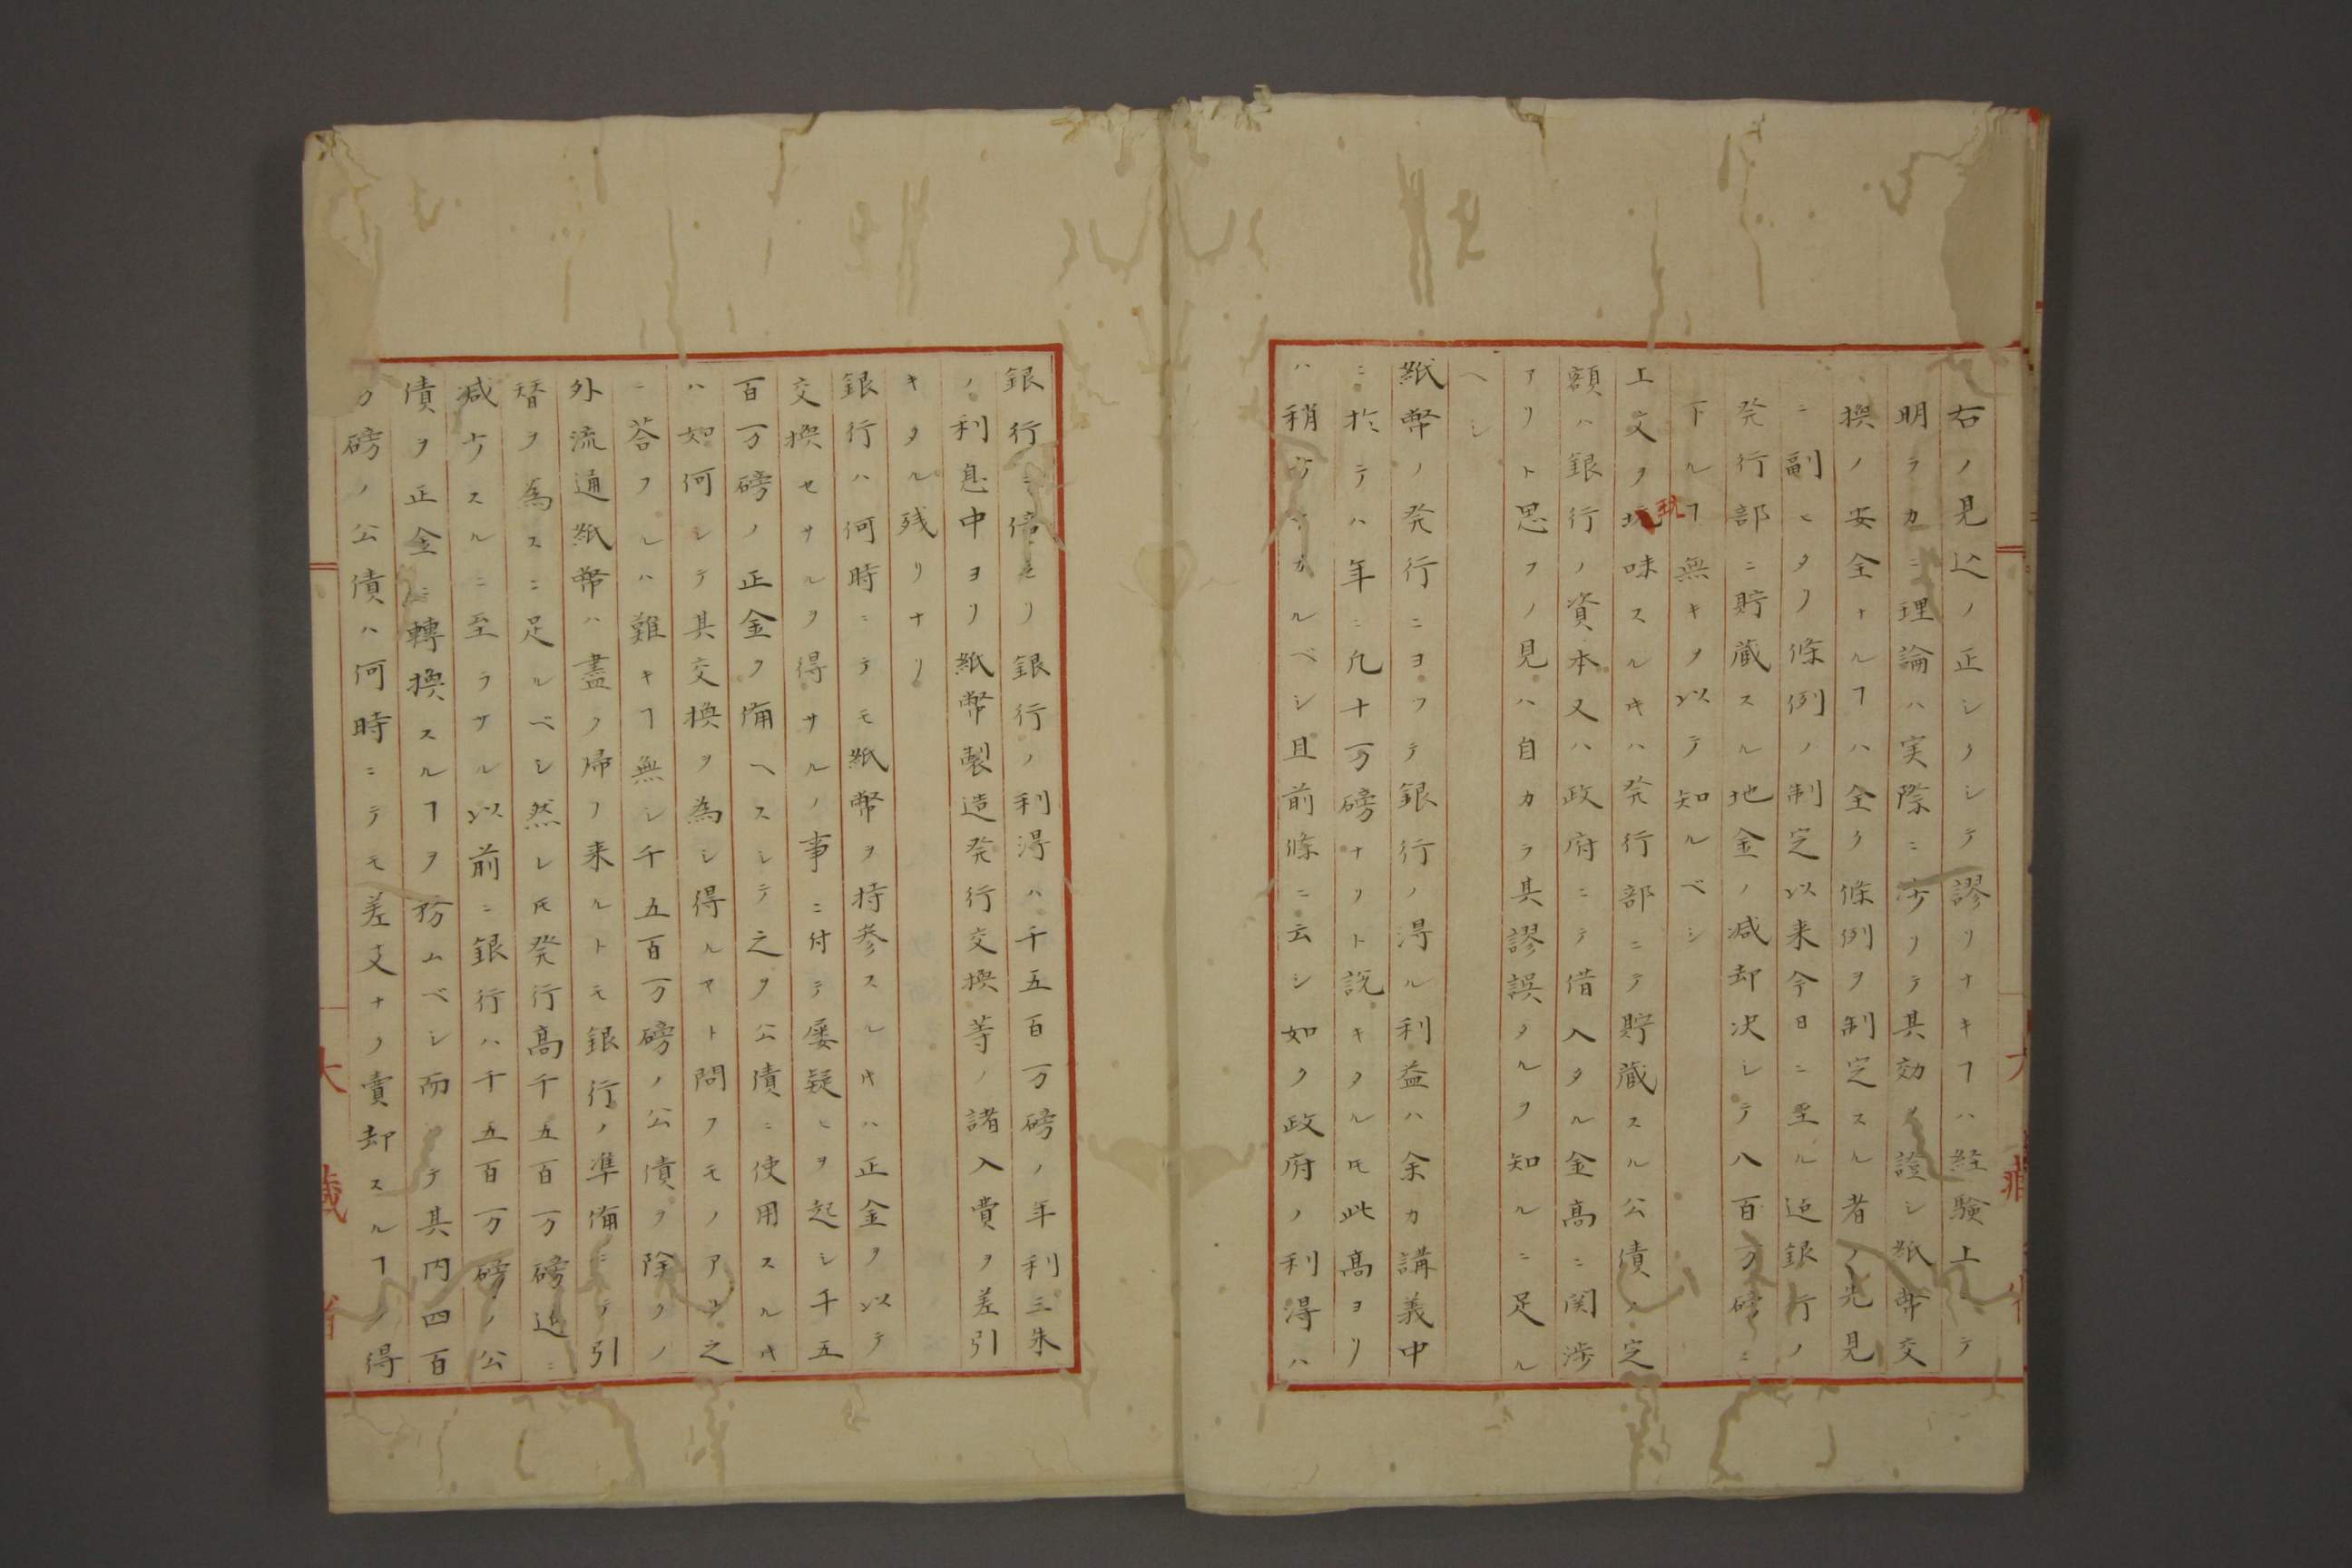 右ノ見込ノ正シクシテ謬リナキヿハ経験上ニテ
明ラカニ理論ハ実際ニ渉リテ其効ヲ證シ紙幣交
換ノ安全ナルヿハ全ク條例ヲ制定スル者ノ先見
ニ副ヒタリ條例ノ制定以来今日ニ至ル迠銀行ノ
発行部ニ貯蔵スル地金ノ減却決シテ八百万磅ニ
下ルヿ無キヲ以テ知ルベシ
上文ヲ玩味スルキハ発行部ニテ貯蔵スル公債ノ定
額ハ銀行ノ資本又ハ政府ニテ借入タル金高ニ関渉
アリト思フノ見ハ自カラ其謬誤タルヲ知ルニ足ル
ヘシ
紙幣ノ発行ニヨツテ銀行ノ得ル利益ハ余カ講義中
ニ於テハ年ニ凡十万磅ナリト説キタルㇳモ此高ヨリ
ハ稍少ナカルベシ且前條ニ云シ如ク政府ノ利得ハ
銀行ニ倍セリ銀行ノ利得ハ千五百万磅ノ年利三朱
ノ利息中ヨリ紙幣製造発行交換等ノ諸入費ヲ差引
キタル残リナリ
銀行ハ何時ニテモ紙幣ヲ持参スルキハ正金ヲ以テ
交換セサルヲ得サルノ事ニ付テ屡疑ヒヲ起シ千五
百万磅ノ正金ヲ備ヘスシテ之ヲ公債ニ使用スルキ
ハ如何シテ其交換ヲ為シ得ルヤト問フモノアリ之
ニ荅フルハ難キヿ無シ千五百万磅ノ公債ヲ除クノ
外流通紙幣ハ盡ク帰リ来ルトモ銀行ノ準備ニテ引
替ヲ為スニ足ルベシ然レㇳモ発行高千五百万磅迠ニ
減ナスルニ至ラサル以前ニ銀行ハ千五百万磅ノ公
債ヲ正金ニ轉換スルヿヲ努ムベシ而テ其内四百
万磅ノ公債ハ何時ニテモ差支ナク賣却スルヿヲ得
大藏省